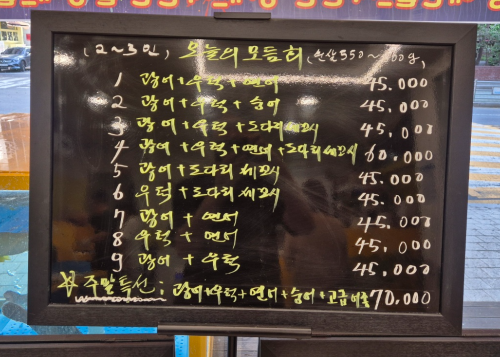 (2~3인) 오늘의 모듬회 (순살 550~600g)
1 광어+우럭+연어 45.000
2 광어+우럭+숭어 45.000
3 광어+우럭+도다리세꼬시 45.000
4 광어+우럭+연어+도다리세꼬시 60.000
5 광어+도다리세꼬시 45.000
6 우럭+도다리세꼬시 45.000
7 광어+연어 45.000
8 우럭+연어 45.000
9 광어+우럭 45.000
주말특선: 광어+우럭+연어+숭어+고급어종 70,000